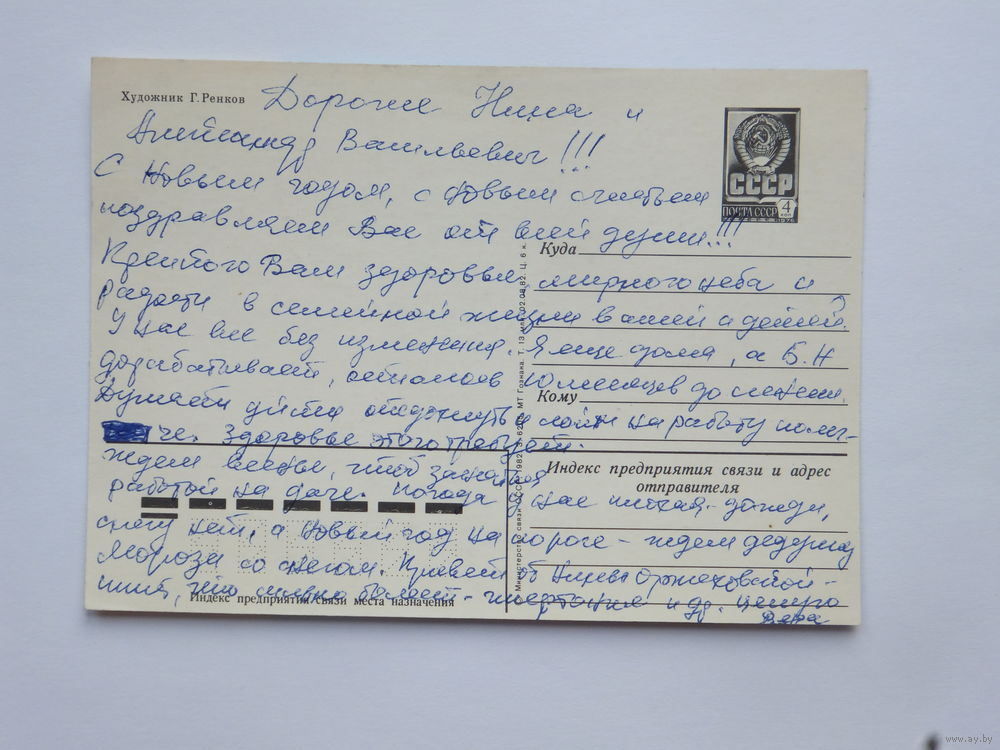 Художник Г. Ренков
Дорогие Нина и
Александр Васильевич!!!
С Новым годом, с новым счастьем
поздравляем Вас от всей души!!!
Крепкого Вам здоровья, мирного неба и
радости в семейной жизни вашей и детей.
У нас все без изменения. Я еще дома, а Б. Н
дорабатывает, осталось до пенсии.
Думает отдохнуть и пойти на работу полег-
че. Здоровье этого требует.
Ждем весны, чтоб заняться
работой на даче. Погода у нас - дожди,
снегу нет, а Новый год на пороге - ждем дедушку
Мороза со снегом. Привет от
что сильно болеет - и др. целую
Вера
СССР
ПОЧТА СССР 4
Куда
Кому
Индекс предприятия связи и адрес
отправителя
Индекс предприятия связи места назначения
© Министерство связи СССР. 1982. МТ Гознака. Ц. 6 к.
www.ay.by